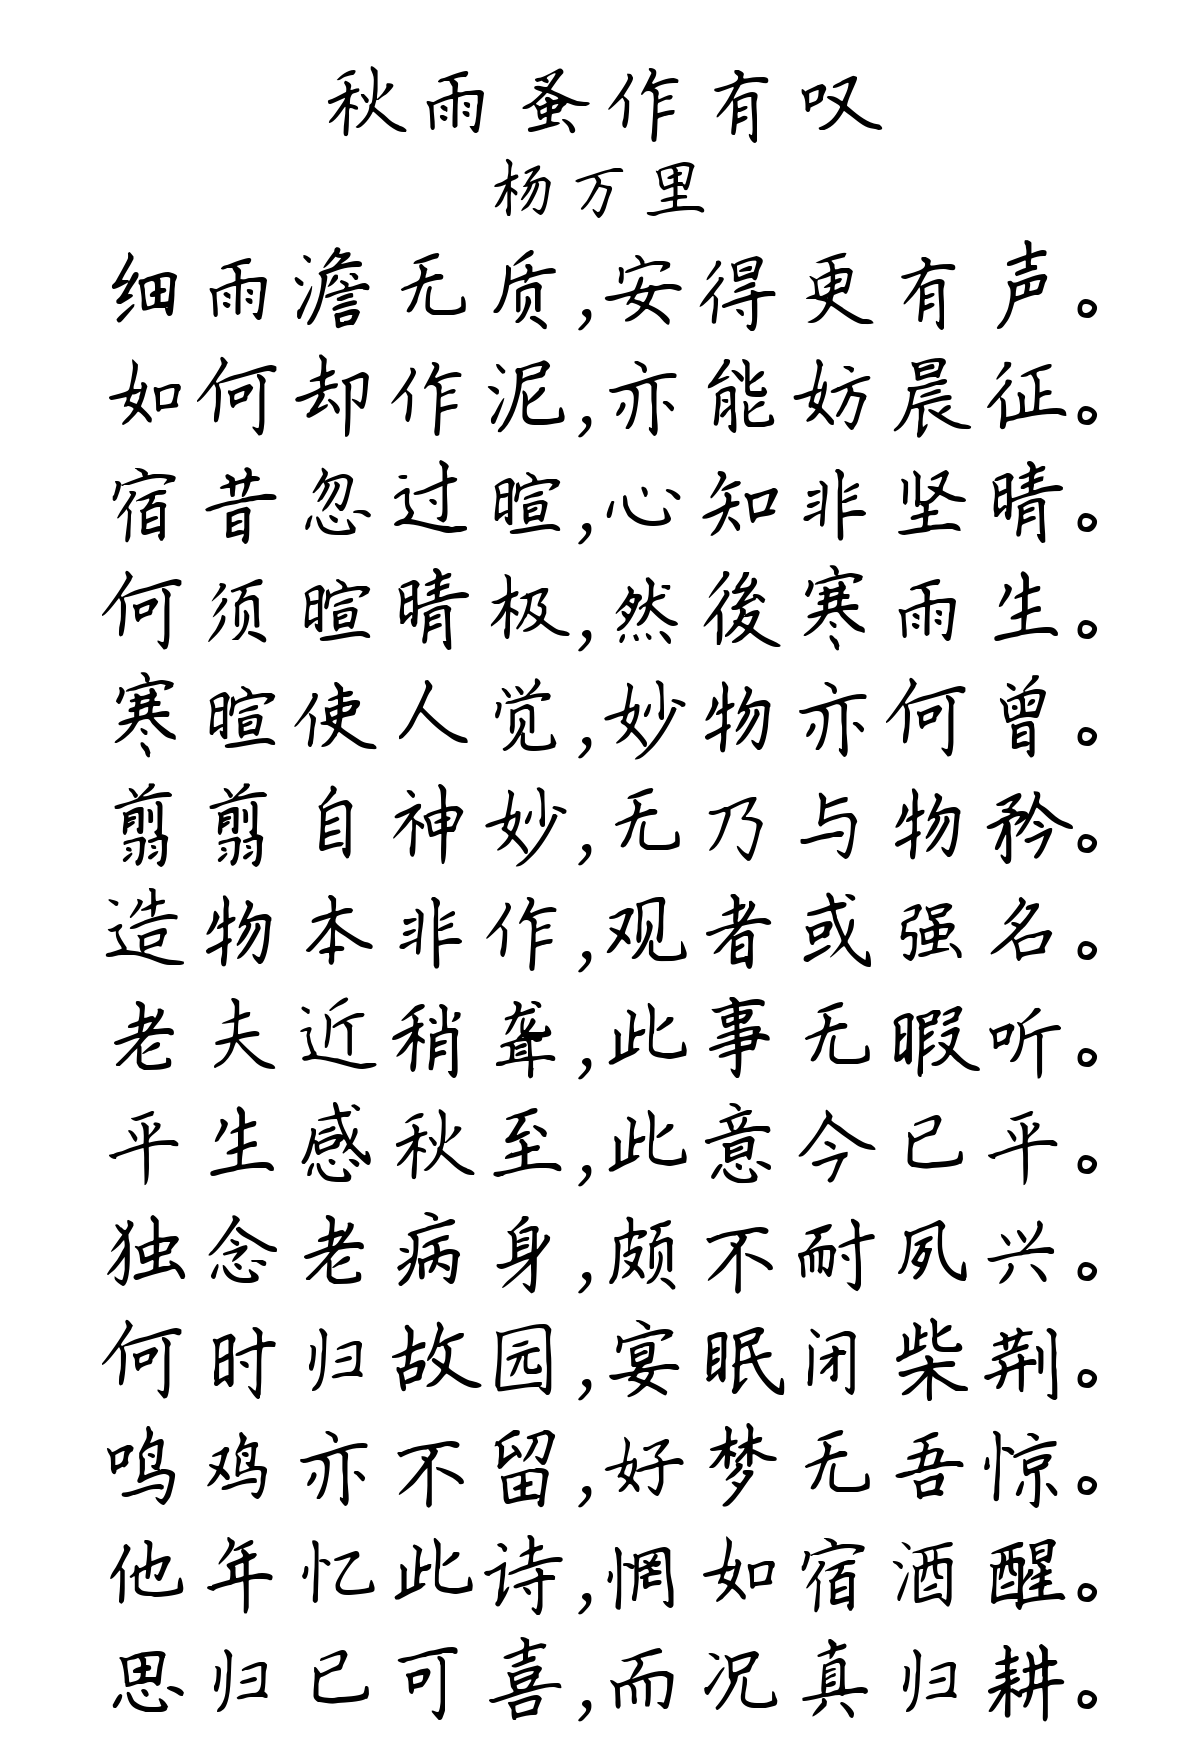 秋雨蚤作有叹
杨万里
细雨澹无质,安得更有声。
如何却作泥,亦能妨晨征。
宿昔忽过暄,心知非坚晴。
何须暄晴极,然後寒雨生。
寒暄使人觉,妙物亦何曾。
翦翦自神妙,无乃与物矜。
造物本非作,观者或强名。
老夫近稍聋,此事无暇听。
平生感秋至,此意今已平。
独念老病身,颇不耐夙兴。
何时归故园,宴眠闭柴荆。
鸣鸡亦不留,好梦无吾惊。
他年忆此诗,惘如宿酒醒。
思归已可喜,而况真归耕。